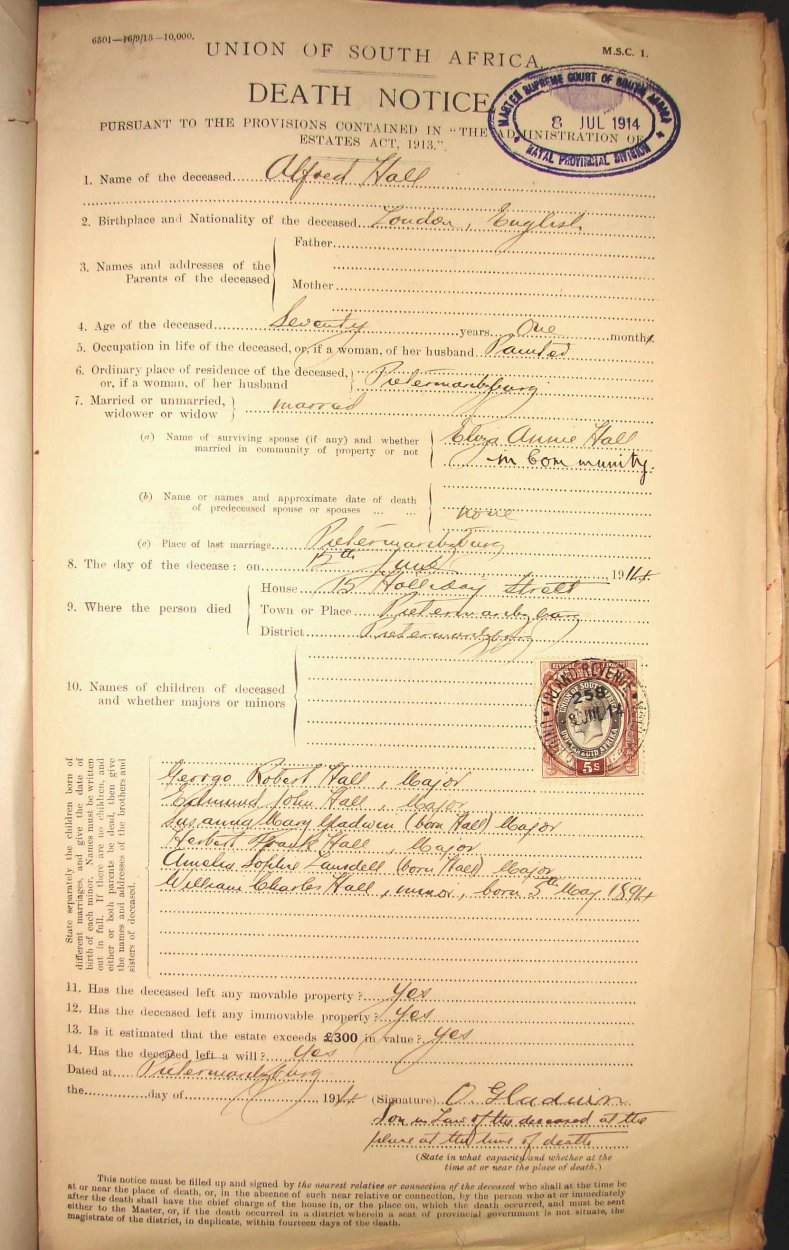 6501—16/9/13—10,000.
M.S.C. 1.
UNION OF SOUTH AFRICA.
DEATH NOTICE
MASTER SUPREME COURT OF SOUTH AFRICA
8 JUL 1914
NATAL PROVINCIAL DIVISION
PURSUANT TO THE PROVISIONS CONTAINED IN "THE ADMINISTRATION OF
ESTATES ACT, 1913."
1. Name of the deceased Alfred Hall
2. Birthplace and Nationality of the deceased London, English
3. Names and addresses of the Parents of the deceased
Father
Mother
4. Age of the deceased Seventy years One months
5. Occupation in life of the deceased, or, if a woman, of her husband
6. Ordinary place of residence of the deceased, or, if a woman, of her husband Pietermaritzburg
7. Married or unmarried, widower or widow married
(a) Name of surviving spouse (if any) and whether married in community of property or not
Eliza Annie Hall
in Community.
(b) Name or names and approximate date of death of predeceased spouse or spouses ... ...
none
(c) Place of last marriage Pietermaritzburg
8. The day of the decease: on 15th June 1914
9. Where the person died
House 15 Holliday Street
Town or Place Pietermaritzburg
District Pietermaritzburg
10. Names of children of deceased and whether majors or minors
INLAND REVENUE
258
8 JUL 14
5s
State separately the children born of
different marriages, and give the date of
birth of each minor. Names must be written
out in full. If there are no children, and
either or both parents be dead, then give
the names and addresses of the brothers and
sisters of deceased.
George Robert Hall, Major
Edmund John Hall, Major
Susanna Mary Gladwin (born Hall) Major
Herbert Frank Hall, Major
Amelia Sophie Lansdell (born Hall) Major
William Charles Hall, minor, born 5th May 1894
11. Has the deceased left any movable property? Yes
12. Has the deceased left any immovable property? Yes
13. Is it estimated that the estate exceeds £300 in value? Yes
14. Has the deceased left a will? Yes
Dated at Pietermaritzburg
the day of 1914 (Signature) O. Gladwin
Son in Law of the deceased at the
place at the time of death
(State in what capacity and whether at the
time at or near the place of death.)
This notice must be filled up and signed by the nearest relative or connection of the deceased who shall at the time be
at or near the place of death, or, in the absence of such near relative or connection, by the person who at or immediately
after the death shall have the chief charge of the house in, or the place on, which the death occurred, and must be sent
either to the Master, or, if the death occurred in a district wherein a seat of provincial government is not situate, the
magistrate of the district, in duplicate, within fourteen days of the death.